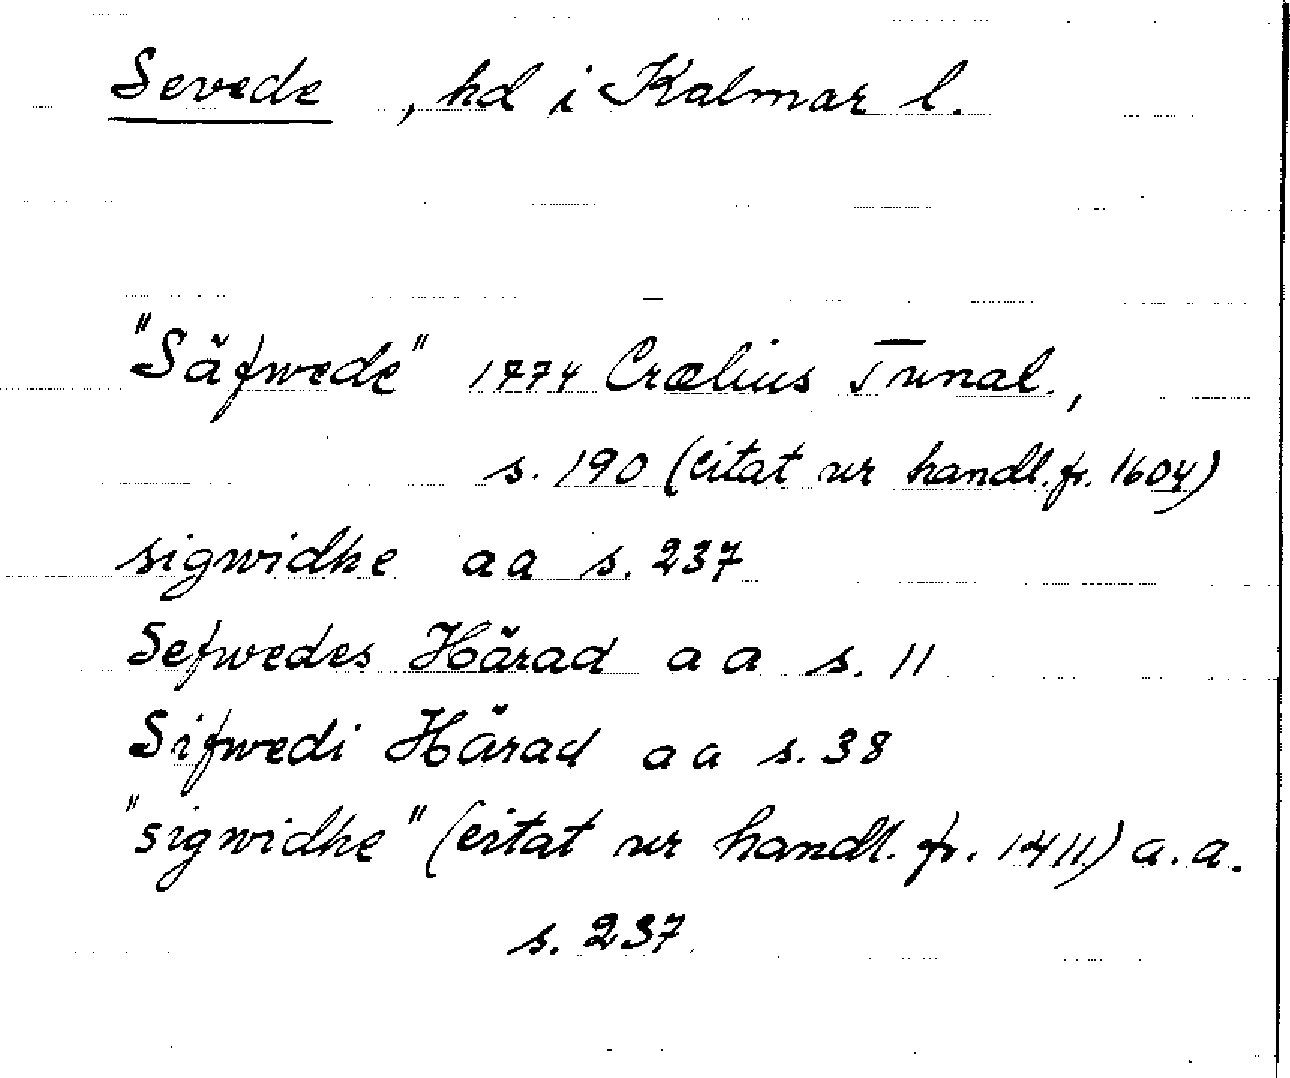 Sevede , hd i Kalmar l.
"Säfwede" 1774 Crælius Tunal.,
s. 190 (citat ur handl. fr. 1604)
sigwidhe aa s. 237
Sefwedes Härad aa s. 11
Sifwedi Härad aa s. 38
"sigwidhe" (citat ur handl. fr. 1411) a.a.
s. 237